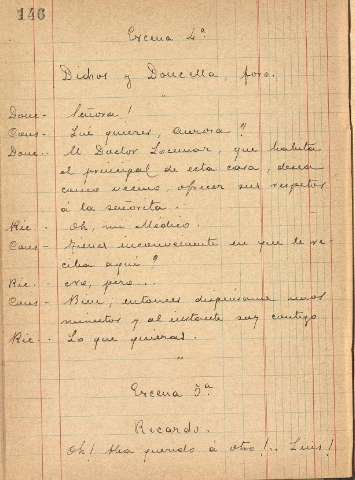 146
Escena 4ª
Dichos y Doncella, foro.
"
Donc - Señora!
Cons - Qué quieres, Aurora?
Donc - El Doctor que habita
el principal de esta casa, desea
como vecino, ofrecer sus respetos
á la señorita.
Ric - Oh, un Médico.
Cons - Tienes inconveniente en que le re-
ciba aquí?
Ric - No, pero...
Cons - Bien, entonces dispénsame unos
minutos y al instante soy contigo
Ric - Lo que quieras.
"
Escena 5ª
Ricardo.
Oh! Ha querido á otro!.. Luis!